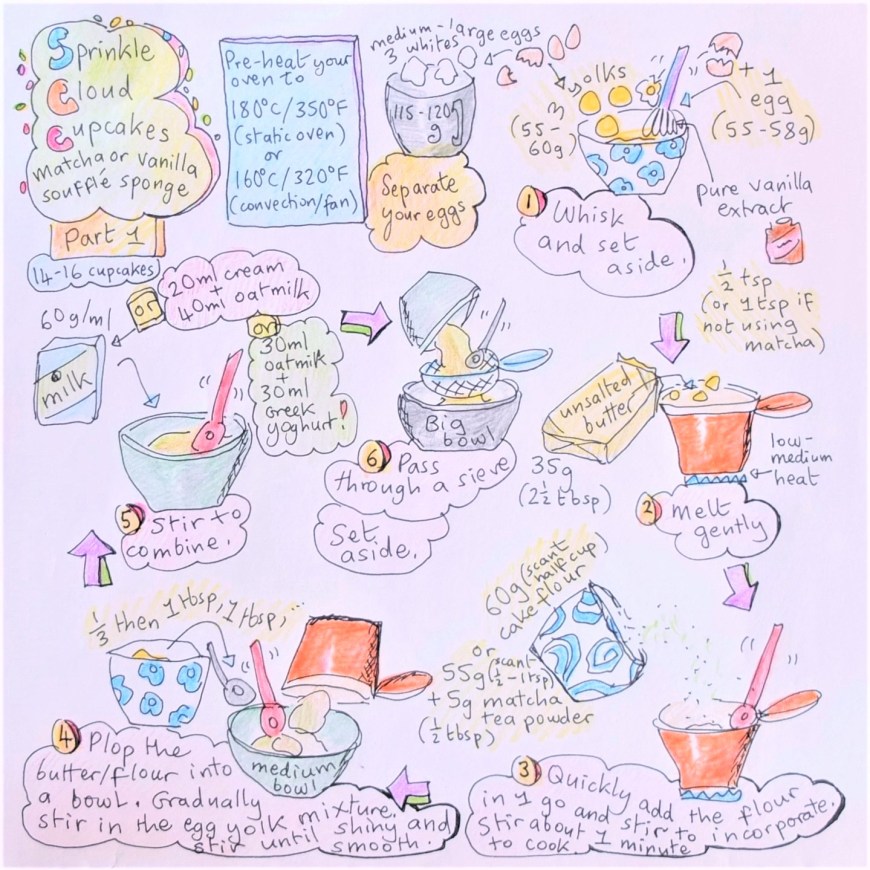 Sprinkle
Cloud
Cupcakes
matcha or vanilla
soufflé sponge
Part 1
14-16 cupcakes
Pre-heat your
oven to
180°C/350°F
(static oven)
or
160°C/320°F
(convection/fan)
medium-large eggs
3 whites
115-120g
g
Separate
your eggs
3 yolks
(55-
60g)
+ 1
egg
(55-58g)
pure vanilla
extract
½ tsp
(or 1tsp if
not using
matcha)
1 Whisk
and set
aside.
unsalted
butter
35g
(2½ tbsp)
low-
medium
heat
2 melt
gently
60g (scant
half cup)
cake flour
or
55g (scant
½-1tsp)
+ 5g matcha
tea powder
(½ tbsp)
3 Quickly add the flour
in 1 go and stir to incorporate.
Stir about 1 minute
to cook.
⅓ then 1 tbsp, 1 tbsp, ..
medium
bowl
4 Plop the
butter/flour into
a bowl. Gradually
stir in the egg yolk mixture,
stir until shiny and
smooth.
60g/ml
milk
or
20ml cream
+
40ml oatmilk
or
30ml
oatmilk
+
30ml
Greek
yoghurt!
5 Stir to
combine.
Big
bowl
6 Pass
through a sieve
Set
aside.